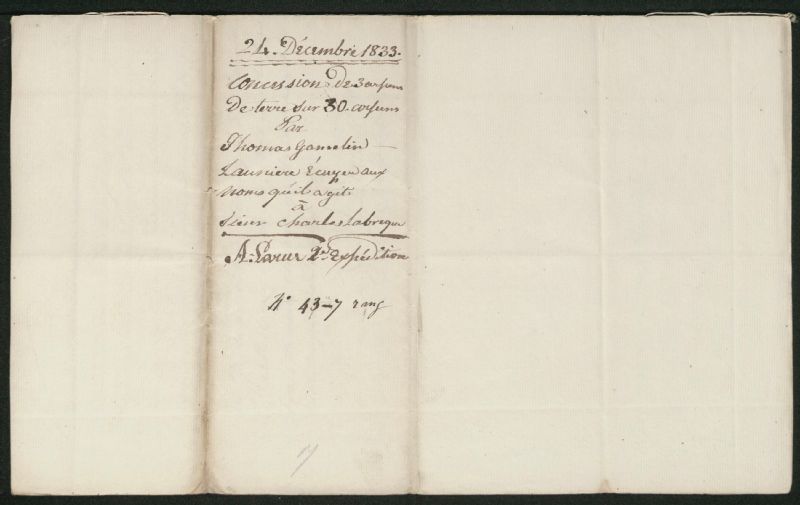 24. Décembre 1833.
Concession De 3 arpens
De terre sur 30. arpens
Par
Thomas Gamelin
Launiere Ecuyer aux
noms qu'il agit
à
Sieur Charles Labreque
A. Larue 2de Expédition
N° 43-7 rang